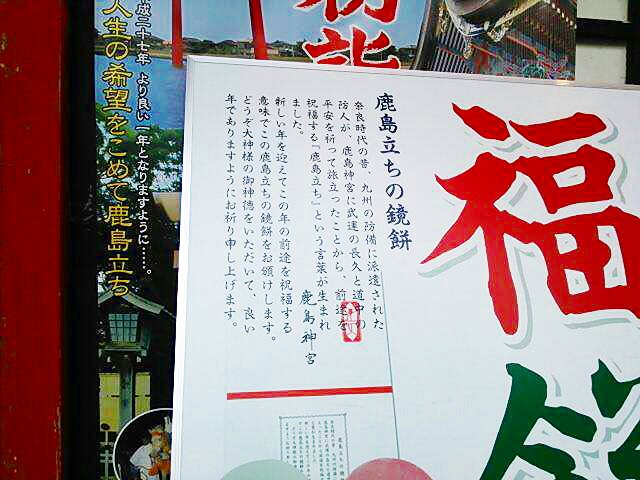 初詣
平成二十七年 より良い一年となりますように……。
人生の希望をこめて鹿島立ち
福
鹿島立ちの鏡餅
奈良時代の昔、九州の防備に派遣された
防人が、鹿島神宮に武運の長久と道中の
平安を祈って旅立ったことから、前途を
祝福する「鹿島立ち」という言葉が生まれ
ました。
新しい年を迎えてこの年の前途を祝福する
意味でこの鹿島立ちの鏡餅をお頒けします。
どうぞ大神様の御神徳をいただいて、良い
年でありますようにお祈り申し上げます。
鹿島神宮